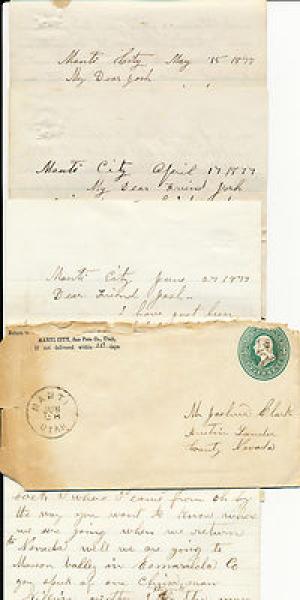 Manti City May 15 1877
My Dear Josh
Manti City April 17 1877
My Dear Friend Josh
Manti City June 27 1877
Dear Friend Josh
I have just been
Return to
MANTI CITY, San Pete Co., Utah,
If not delivered within 10 days
MANTI
JUN
28
UTAH
Mr Joshua Clark
Austin Lander
County Nevada
where I came from oh by
the way you want to know where
we are going when we return
to Nevada well we are going to
Mason Valley in Esmaralda Co
you speak of one Chinaman